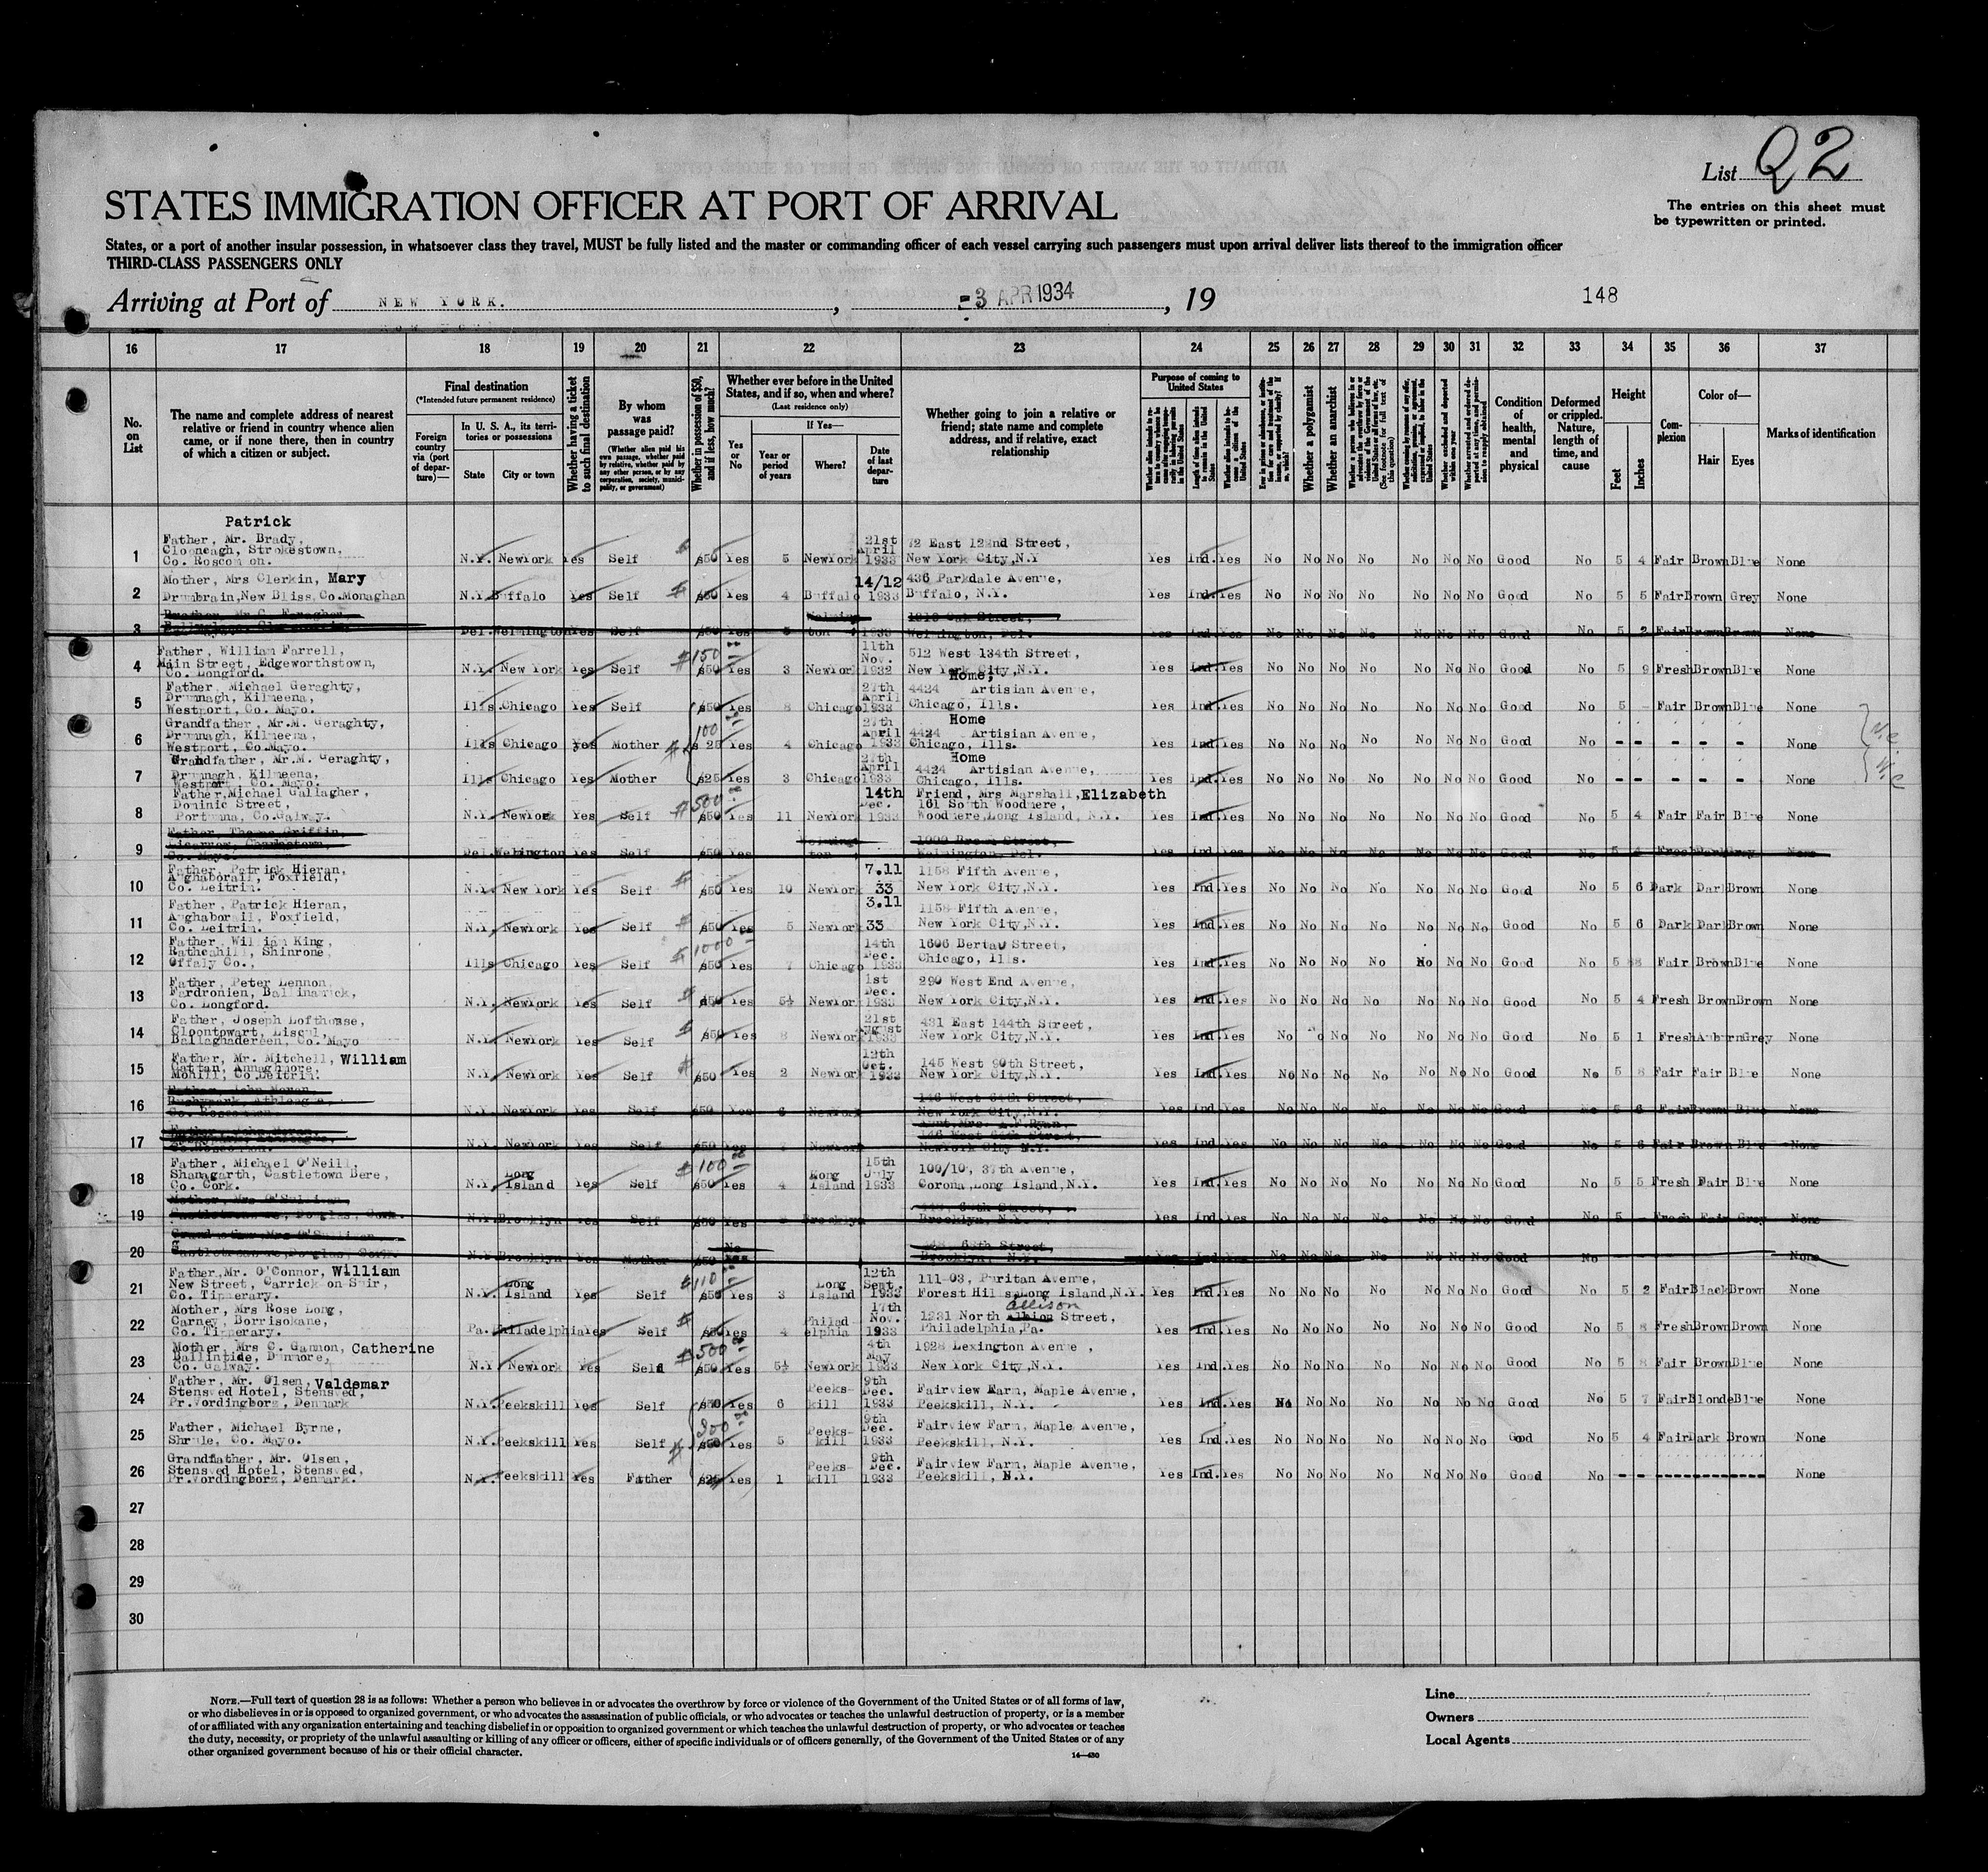 List Q2
STATES IMMIGRATION OFFICER AT PORT OF ARRIVAL
The entries on this sheet must
be typewritten or printed.
States, or a port of another insular possession, in whatsoever class they travel, MUST be fully listed and the master or commanding officer of each vessel carrying such passengers must upon arrival deliver lists thereof to the immigration officer
THIRD-CLASS PASSENGERS ONLY
Arriving at Port of NEW YORK. , -3 APR 1934 , 19 148
16 17 18 19 20 21 22 23 24 25 26 27 28 29 30 31 32 33 34 35 36 37
No. on List
The name and complete address of nearest
relative or friend in country whence alien
came, or if none there, then in country
of which a citizen or subject.
Final destination
(*Intended future permanent residence)
Foreign country via (port of departure)—
In U. S. A., its territories or possessions
State
City or town
Whether having a ticket to such final destination
By whom was passage paid?
(Whether alien paid his own passage, whether paid by relative, whether paid by any other person, or by any corporation, society, municipality, or government)
Whether in possession of $50, and if less, how much?
Whether ever before in the United States, and if so, when and where?
(Last residence only)
Yes or No
If Yes—
Year or period of years
Where?
Date of last departure
Whether going to join a relative or
friend; state name and complete
address, and if relative, exact
relationship
Purpose of coming to United States
Length of time alien intends to remain in the United States
Whether alien intends to become a citizen of the United States
Whether a polygamist
Whether an anarchist
(See footnote for full text of this question)
Whether excluded and deported within one year
Condition of health, mental and physical
Deformed or crippled. Nature, length of time, and cause
Height
Feet
Inches
Complexion
Color of—
Hair
Eyes
Marks of identification
Patrick
1 Father, Mr. Brady, Clooneagh, Strokestown, Co. Roscommon. N.Y. NewYork Yes Self $50 Yes 5 NewYork 21st April 1933 72 East 122nd Street, New York City,N.Y Yes Ind. Yes No No No No No No No Good No 5 4 Fair Brown Blue None
2 Mother, Mrs Clerkin, Mary Drumbrain,New Bliss,Co.Monaghan N.Y. Buffalo Yes Self $50 Yes 4 Buffalo 14/12 1933 436 Parkdale Avenue, Buffalo, N.Y. Yes Ind. Yes No No No No No No No Good No 5 5 Fair Brown Grey None
3 Del. Welmington Yes Self $50 Yes 1933 Welmington, Del. Yes Ind. Yes No No No No No No No Good No 5 2 Fair Brown Brown None
4 Father, William Farrell, Main Street, Edgeworthstown, Co. Longford. N.Y. New York Yes Self $150 $50 Yes 3 NewYork 11th Nov. 1932 512 West 134th Street, New York City,N.Y. Yes Ind. Yes No No No No No No No Good No 5 9 Fresh Brown Blue None
5 Father, Michael Geraghty, Drumnagh, Kilmeena, Westport, Co. Mayo. Ills. Chicago Yes Self $50 Yes 8 Chicago 27th April 1933 Home, 4424 Artisian Avenue, Chicago, Ills. Yes Ind. Yes No No No No No No No Good No 5 - Fair Brown Blue None
6 Grandfather, Mr.M. Geraghty, Drumnagh, Kilmeena, Westport, Co.Mayo. Ills Chicago Yes Mother 100 $ 25 Yes 4 Chicago 27th April 1933 Home 4424 Artisian Avenue, Chicago, Ills. Yes Ind. Yes No No No No No No No Good No - - - - - None
7 Grandfather, Mr.M. Geraghty, Drumnagh, Kilmeena, Westport, Co. Mayo. Ills Chicago Yes Mother $25 Yes 3 Chicago 27th April 1933 Home 4424 Artisian Avenue, Chicago, Ills. Yes Ind. Yes No No No No No No No Good No - - - - - None
8 Father,Michael Gallagher, Dominic Street, Portumna, Co.Galway. N.Y. NewYork Yes Self $500 $50 Yes 11 NewYork 14th Dec. 1933 Friend, Mrs Marshall, Elizabeth 161 South Woodmere, Woodmere,Long Island, N.Y. Yes Ind. Yes No No No No No No No Good No 5 4 Fair Fair Blue None
9 Father, Thomas Griffin, Co. Mayo. Del. Welmington Yes Self $50 Yes Welmington, Del. Yes Ind Yes No No No No No No No Good No 5 4 Fresh Dark Grey None
10 Father, Patrick Hieran, Aughaborail, Foxfield, Co. Leitrim. N.Y. New York Yes Self $50 Yes 10 NewYork 7.11 33 1158 Fifth Avenue, New York City,N.Y. Yes Ind. Yes No No No No No No No Good No 5 6 Dark Dark Brown None
11 Father, Patrick Hieran, Aughaborail, Foxfield, Co. Leitrim. N.Y. NewYork Yes Self $50 Yes 5 NewYork 3.11 33 1158 Fifth Avenue, New York City,N.Y. Yes Ind. Yes No No No No No No No Good No 5 6 Dark Dark Brown None
12 Father, William King, Rathcahill, Shinrone, Offaly Co., Ills Chicago Yes Self $1000 $50 Yes 7 Chicago 14th Dec. 1933 1606 Bertau Street, Chicago, Ills. Yes Ind. Yes No No No No No No No Good No 5 8 Fair Brown Blue None
13 Father, Peter Lennon, Fardronien, Ballinamuck, Co. Longford. N.Y. NewYork Yes Self $50 Yes 5½ NewYor 1st Dec. 1933 290 West End Avenue, New York City,N.Y. Yes Ind. Yes No No No No No No No Good No 5 4 Fresh Brown Brown None
14 Father, Joseph Lofthouse, Cloontowart, Liscul, Ballaghadereen, Co.Mayo N.Y. NewYork Yes Self $50 Yes 8 NewYork 21st August 1933 431 East 144th Street, New York City,N.Y. Yes Ind. Yes No No No No No No No Good No 5 1 Fresh Auburn Grey None
15 Father, Mr. Mitchell, William Gattan, Annaghmore, Mohill, Co.Leitrim. N.Y. NewYork Yes Self $50 Yes 2 NewYork 12th Oct. 1932 145 West 90th Street, New York City,N.Y. Yes Ind. Yes No No No No No No No Good No 5 8 Fair Fair Blue None
16 Father, John Moran, Athleague, Co. Roscommon. N.Y. NewYork Yes Self $50 Yes 6 NewYork 146 West 64th Street, New York City,N.Y. Yes Ind. Yes No No No No No No No Good No 5 6 Fair Brown Blue None
17 Father, John Moran, N.Y. NewYork Yes Self $50 Yes NewYork Aunt,Mrs. A.F.Ryan, 146 West 64th Street, NewYork City N.Y. Yes Ind Yes No No No No No No No Good No 5 6 Fair Brown Blue None
18 Father, Michael O'Neill, Shanagarth, Castletown Bere, Co. Cork. N.Y. Long Island Yes Self $100 $50 Yes 4 Long Island 15th July 1933 100/10, 37th Avenue, Corona,Long Island,N.Y. Yes Ind. Yes No No No No No No No Good No 5 5 Fresh Fair Blue None
19 Mother, Mrs O'Sullivan Douglas, Cork. N.Y. Brooklyn Yes Self $50 Yes Brooklyn Brooklyn, N.Y. Yes Ind Yes No No No No No No No Good No 5 - Fresh Fair Grey None
20 Grandmother, Mrs O'Sullivan Douglas, Cork. N.Y. Brooklyn Yes Mother $50 No Brooklyn, N.Y. Yes Ind Yes No No No No No No No Good No None
21 Father,Mr. O'Connor, William New Street, Carrick on Suir, Co. Tipperary. N.Y. Long Island Yes Self $110 $50 Yes 3 Long Island 12th Sept. 1933 111-03, Puritan Avenue, Forest Hills,Long Island,N.Y. Yes Ind. Yes No No No No No No No Good No 5 2 Fair Black Brown None
22 Mother, Mrs Rose Long, Carney, Borrisokane, Co. Tipperary. Pa. Philadelphia Yes Self $50 Yes 4 Philadelphia 17th Nov. 1933 1231 North Albion Allison Street, Philadelphia,Pa. Yes Ind. Yes No No No No No No No Good No 5 8 Fresh Brown Brown None
23 Mother, Mrs C. Gannon, Catherine Ballintide, Dunmore, Co. Galway. N.Y NewYork Yes Self $500 $50 Yes 5½ NewYork 4th May 1933 1928 Lexington Avenue, New York City,N.Y. Yes Ind. Yes No No No No No No No Good No 5 8 Fair Brown Blue None
24 Father, Mr. Olsen, Valdemar Stensved Hotel, Stensved, Pr.Vordingborg, Denmark N.Y. Peekskill Yes Self $50 Yes 6 Peekskill 9th Dec. 1933 Fairview Farm, Maple Avenue, Peekskill, N.Y. Yes Ind. Yes No No No No No No No Good No 5 7 Fair Blonde Blue None
25 Father, Michael Byrne, Shrule, Co. Mayo. N.Y. Peekskill Yes Self 300 $50 Yes 5 Peekskill 9th Dec. 1933 Fairview Farm, Maple Avenue, Peekskill, N.Y. Yes Ind. Yes No No No No No No No Good No 5 4 Fair Dark Brown None
26 Grandfather, Mr. Olsen, Stensved Hotel, Stensved, Pr.Vordingborg, Denmark. N.Y. Peekskill Yes Father $25 Yes 1 Peekskill 9th Dec. 1933 Fairview Farm, Maple Avenue, Peekskill, N.Y. Yes Ind. Yes No No No No No No No Good No - - - - - None
27
28
29
30
NOTE.—Full text of question 28 is as follows: Whether a person who believes in or advocates the overthrow by force or violence of the Government of the United States or of all forms of law,
or who disbelieves in or is opposed to organized government, or who advocates the assassination of public officials, or who advocates or teaches the unlawful destruction of property, or is a member
of or affiliated with any organization entertaining and teaching disbelief in or opposition to organized government or which teaches the unlawful destruction of property, or who advocates or teaches
the duty, necessity, or propriety of the unlawful assaulting or killing of any officer or officers, either of specific individuals or of officers generally, of the Government of the United States or of any
other organized government because of his or their official character.
14—430
Line
Owners
Local Agents